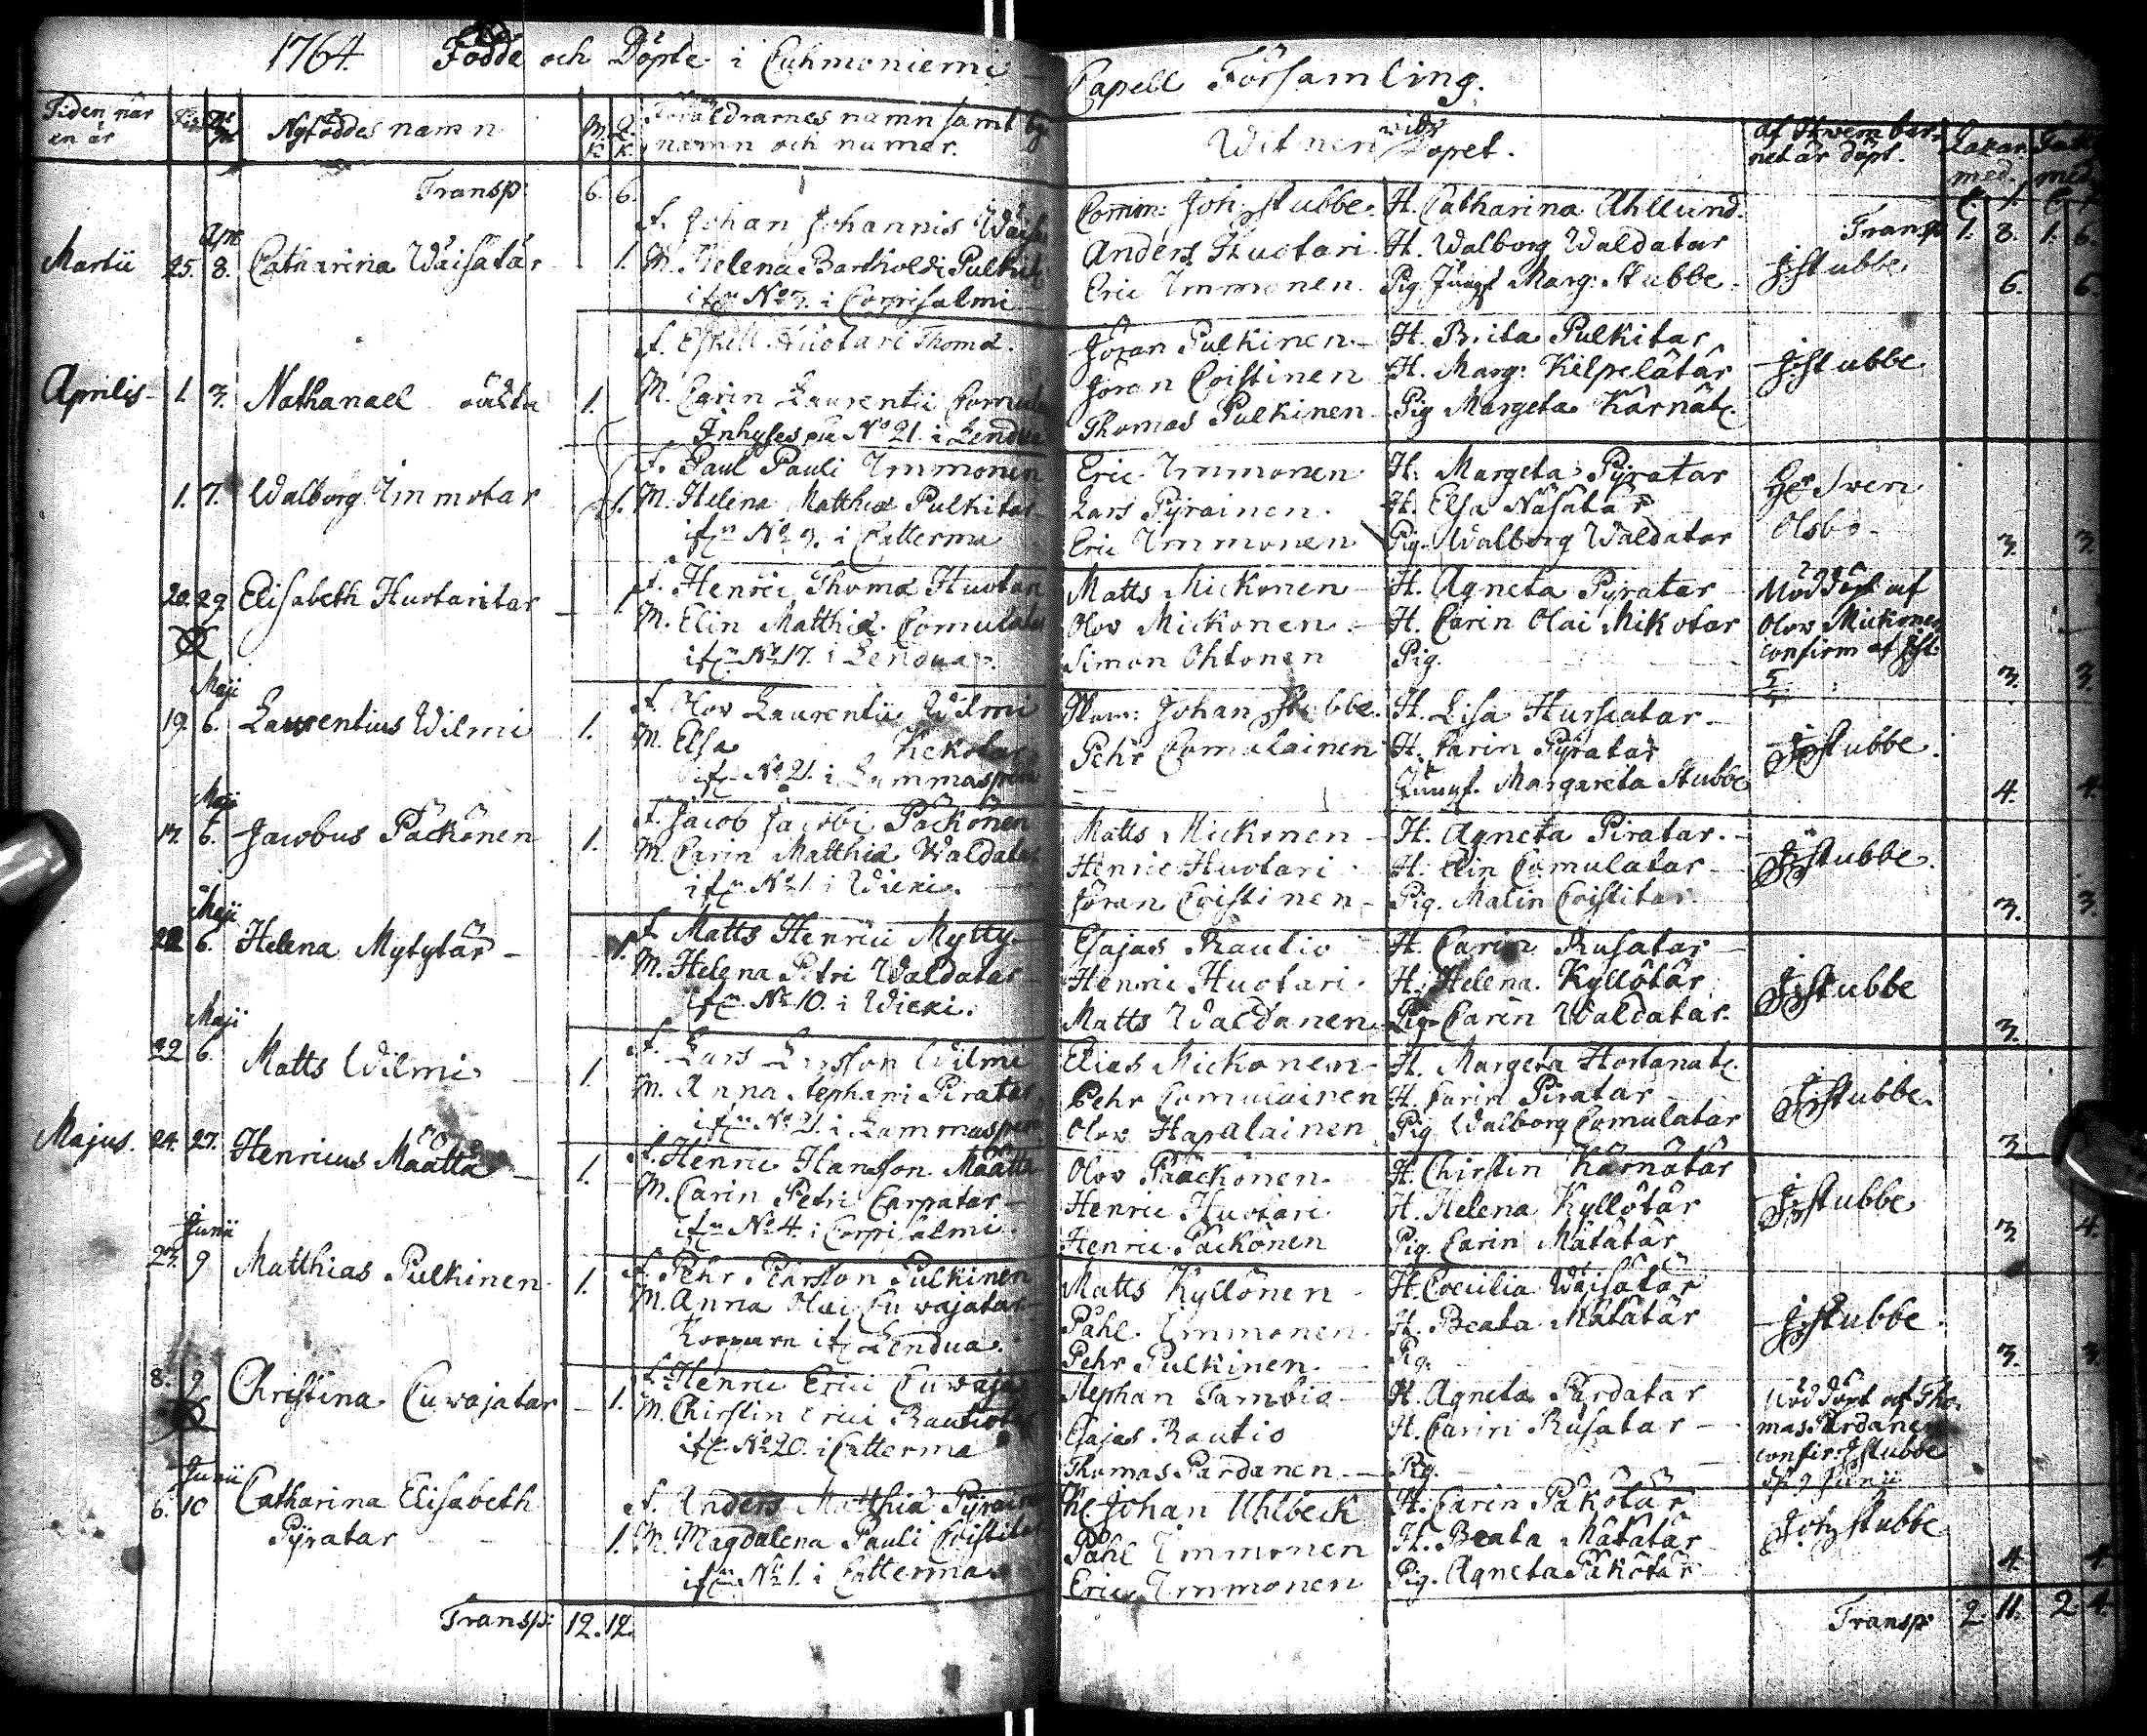 1764. Födde och Döpte i Cuhmoniemi Capell Församling.
Tiden när en är
Nyföddes namn
M.K. Q.K.
Föräldrarnes namn samt by namn och numer.
Witnen widh Dopet.
af Hwem barnet är döpt.
Transp: 6. 6.
Transp 1. 8. 1. 6.
Martii 25. Apr. 8. Catharina Wäisatär 1.
F. Johan Johannis Wäis
M. Helena Bartholdi Pulkit
if:n No 3. i Corpisalmi
Comm: Joh: Stubbe. H. Catharina Ahllund.
Anders Huotari H. Walborg Waldatar
Eric Immonen. Pig. Jungf Marg: Stubbe.
JStubbe 6. 6.
Aprilis 1. 3. Nathanael 1.
F. Eskill Huotari Thomæ.
M. Carin Laurentii Comula
Inhyses på No 21. i Lendua
Jöran Pulkinen H. Brita Pulkitar
Jöran Coistinen H. Marg: Kilpelätär
Thomas Pulkinen Pig Margeta Kärnät
JStubbe
1. 7. Walborg Immotar 1.
F. Paul Pauli Immonen
M. Helena Matthiæ Pulkitar
if:n No 9. i Catterma
Eric Immonen H. Margeta Pyratar
Lars Pyrainen. H. Elsa Näsätär
Eric Immonen Pig. Walborg Waldatar
Hr Sven
Olsbo
3. 3.
20. 29 Elisabeth Huotaritar 1.
F. Henric Thomæ Huotari
M. Elin Matthiæ Comulatar
if:n No 17. i Lendua.
Matts Mickonen H. Agneta Pyratar
Olov Mickonen H. Carin Olai Mikotar
Simon Ohtonen Pig.
Nöddöpt af
Olov Mickonen
confirm af JSt:
3. 3.
19. Maji 6. Laurentius Wilmi 1.
F. Olov Laurentii Wilmi
M. Elsa Kekotar
if:n No 21. i Lammasperä
Comm: Johan Stubbe. H. Lisa Hurscatar
Pehr Comulainen H. Carin Pyratar
Jungf. Margareta Stubbe
JStubbe.
4. 4.
17. Maji 6. Jacobus Päckönen 1.
F. Jacob Jacobi Päckönen
M. Carin Matthiæ Waldatar
if:n No 1. i Wieki.
Matts Mickonen H. Agneta Piratar.
Henric Huotari H. Elin Comulatar
Jöran Coistinen Pig. Malin Coistitar.
JStubbe.
3. 3.
22 Maji 6. Helena Mytytär 1.
F. Matts Henrici Mytty
M. Helena Petri Waldatar
if:n No 10. i Wieki.
Esajas Rautio H. Carin Rusatar
Henric Huotari. H. Helena Kyllötär
Matts Waldanen Pig Carin Waldatar.
JStubbe
3.
22 Maji 6. Matts Wilmi 1.
F. Lars Larsson Wilmi
M. Anna Stephani Piratar
if:n No 21. i Lammasperä
Elias Mickonen H. Margeta Hortanat
Pehr Comulainen H. Carin Piratar
Olov Hapalainen Pig Walborg Comulatar
JStubbe.
3
Majus. 24. 27. Henricus Määttä 1.
F. Henric Hansson Määttä
M. Carin Petri Carpatar
if:n No 4. i Corpisalmi.
Olov Pääckönen H. Chirstin Kärnätär
Henric Huotari H. Helena Kyllötär
Henric Päckönen Pig. Carin Mätätär
JStubbe
3 4.
23. Junii 9 Matthias Pulkinen 1.
F. Pehr Pehrsson Pulkinen
M. Anna Olai Cuwajatar
if Lendua.
Matts Kyllönen H. Coecilia Wäisätär
Påhl Immonen. H. Beata Mätätär
Pehr Pulkinen. Pig.
JStubbe.
3. 3.
8. 9 Christina Cuwajatar 1.
F. Henric Erici Cuwajas
M. Chirstin Erici Rautiotar
if:n No 20. i Catterma
Stephan Tambio H. Agneta Pardatar
Esajas Rautio H. Carin Rusatar
Thomas Pardanen Pig.
Nöddöpt af Thomas Pardanen
confir: JStubbe
d. 9 Junii
6. Junii 10 Catharina Elisabeth
Pyratar 1.
F. Anders Matthiæ Pyrainen
M. Magdalena Pauli Coistitar
if:n No 1. i Catterma
Hr Johan Uhlbeck H. Carin Päkötär
Påhl Immonen H. Beata Mätätär
Eric Immonen Pig. Agneta Päkötär
Joh Stubbe
4 4
Transp: 12. 12.
Transp 2. 11. 2. 4.